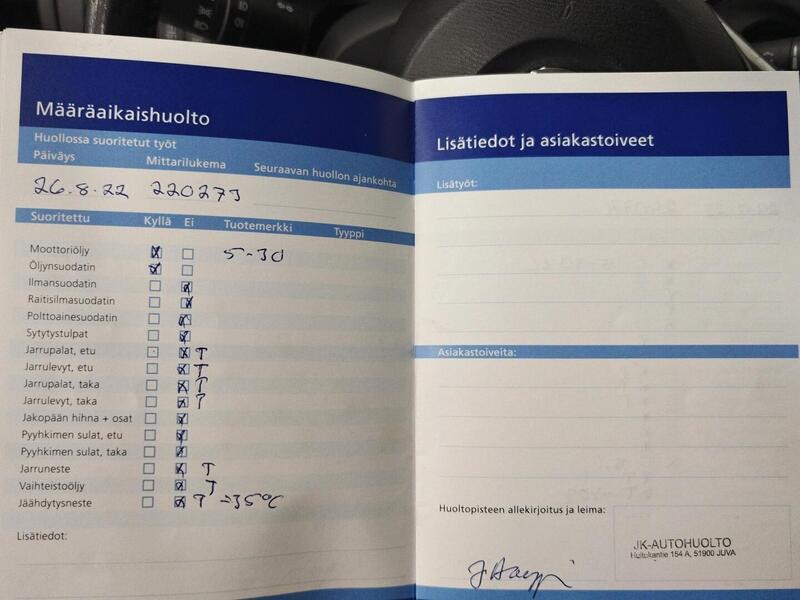 Määräaikaishuolto
Huollossa suoritetut työt
Päiväys Mittarilukema Seuraavan huollon ajankohta
26.8.22 220273
Suoritettu Kyllä Ei Tuotemerkki Tyyppi
Moottoriöljy X 5-30
Öljynsuodatin X
Ilmansuodatin X
Raitisilmasuodatin X
Polttoainesuodatin X
Sytytystulpat X
Jarrupalat, etu X T
Jarrulevyt, etu X T
Jarrupalat, taka X T
Jarrulevyt, taka X T
Jakopään hihna + osat X
Pyyhkimen sulat, etu X
Pyyhkimen sulat, taka X
Jarruneste X T
Vaihteistoöljy X T
Jäähdytysneste X T -35°C
Lisätiedot:
Lisätiedot ja asiakastoiveet
Lisätyöt:
Asiakastoiveita:
Huoltopisteen allekirjoitus ja leima:
JK-AUTOHUOLTO
Huitokantie 154 A, 51900 JUVA